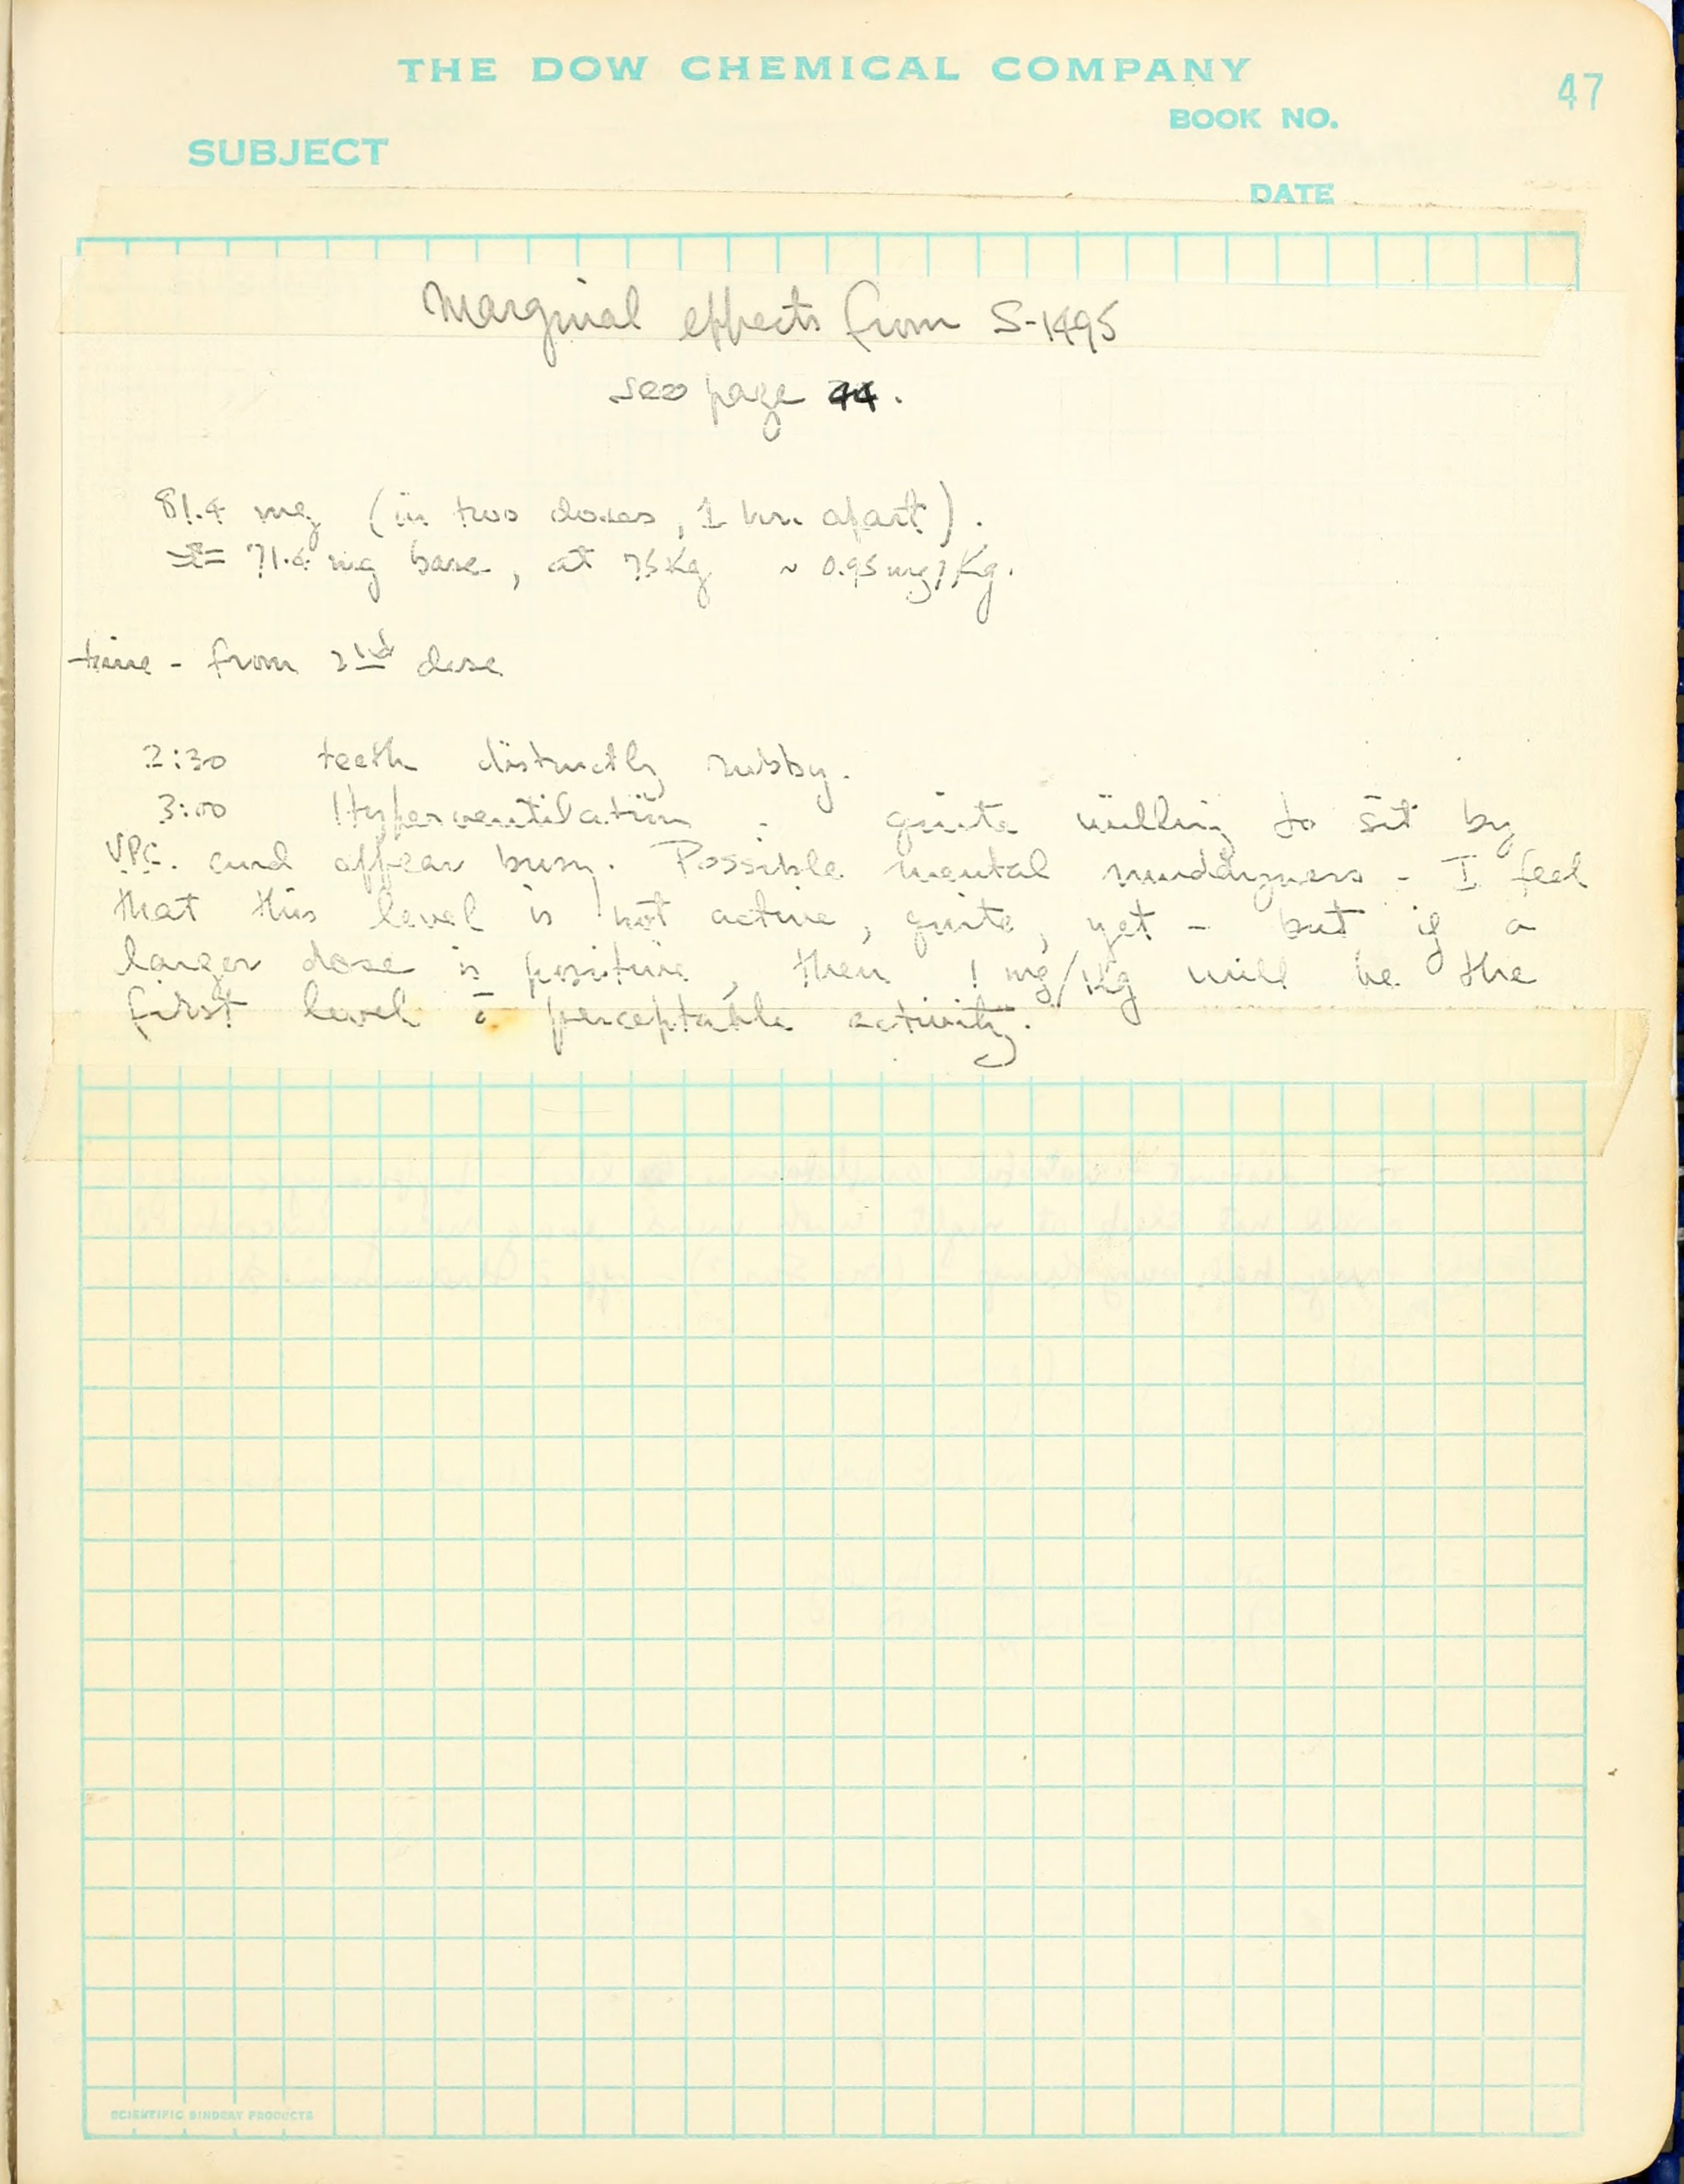 THE DOW CHEMICAL COMPANY
47
BOOK NO.
SUBJECT
DATE
Marginal effects from S-1495
see page 44.
81.4 mg (in two doses, 1 hr. apart).
= 71.4 mg base, at 75 Kg ~ 0.95 mg/Kg.
time - from 2nd dose
2:30 teeth distinctly rubby.
3:00 Hyperventilation . quite willing to sit by
VPC. and appear busy. Possible mental muddyness - I feel
that this level is not active, quite, yet - but if a
larger dose is positive, then 1 mg/Kg will be the
first level c̄ perceptable activity.
SCIENTIFIC BINDERY PRODUCTS